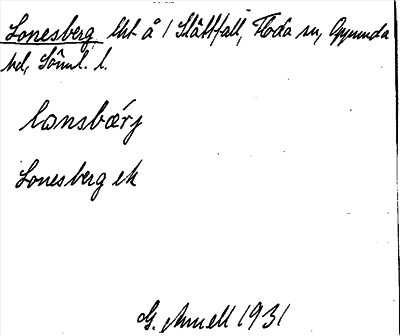 Lonesberg, lht å 1 Slättfall, Floda sn, Oppunda
hd, Söml. l.
lωnsbærj
Lonesberg ek
G. Annell 1931